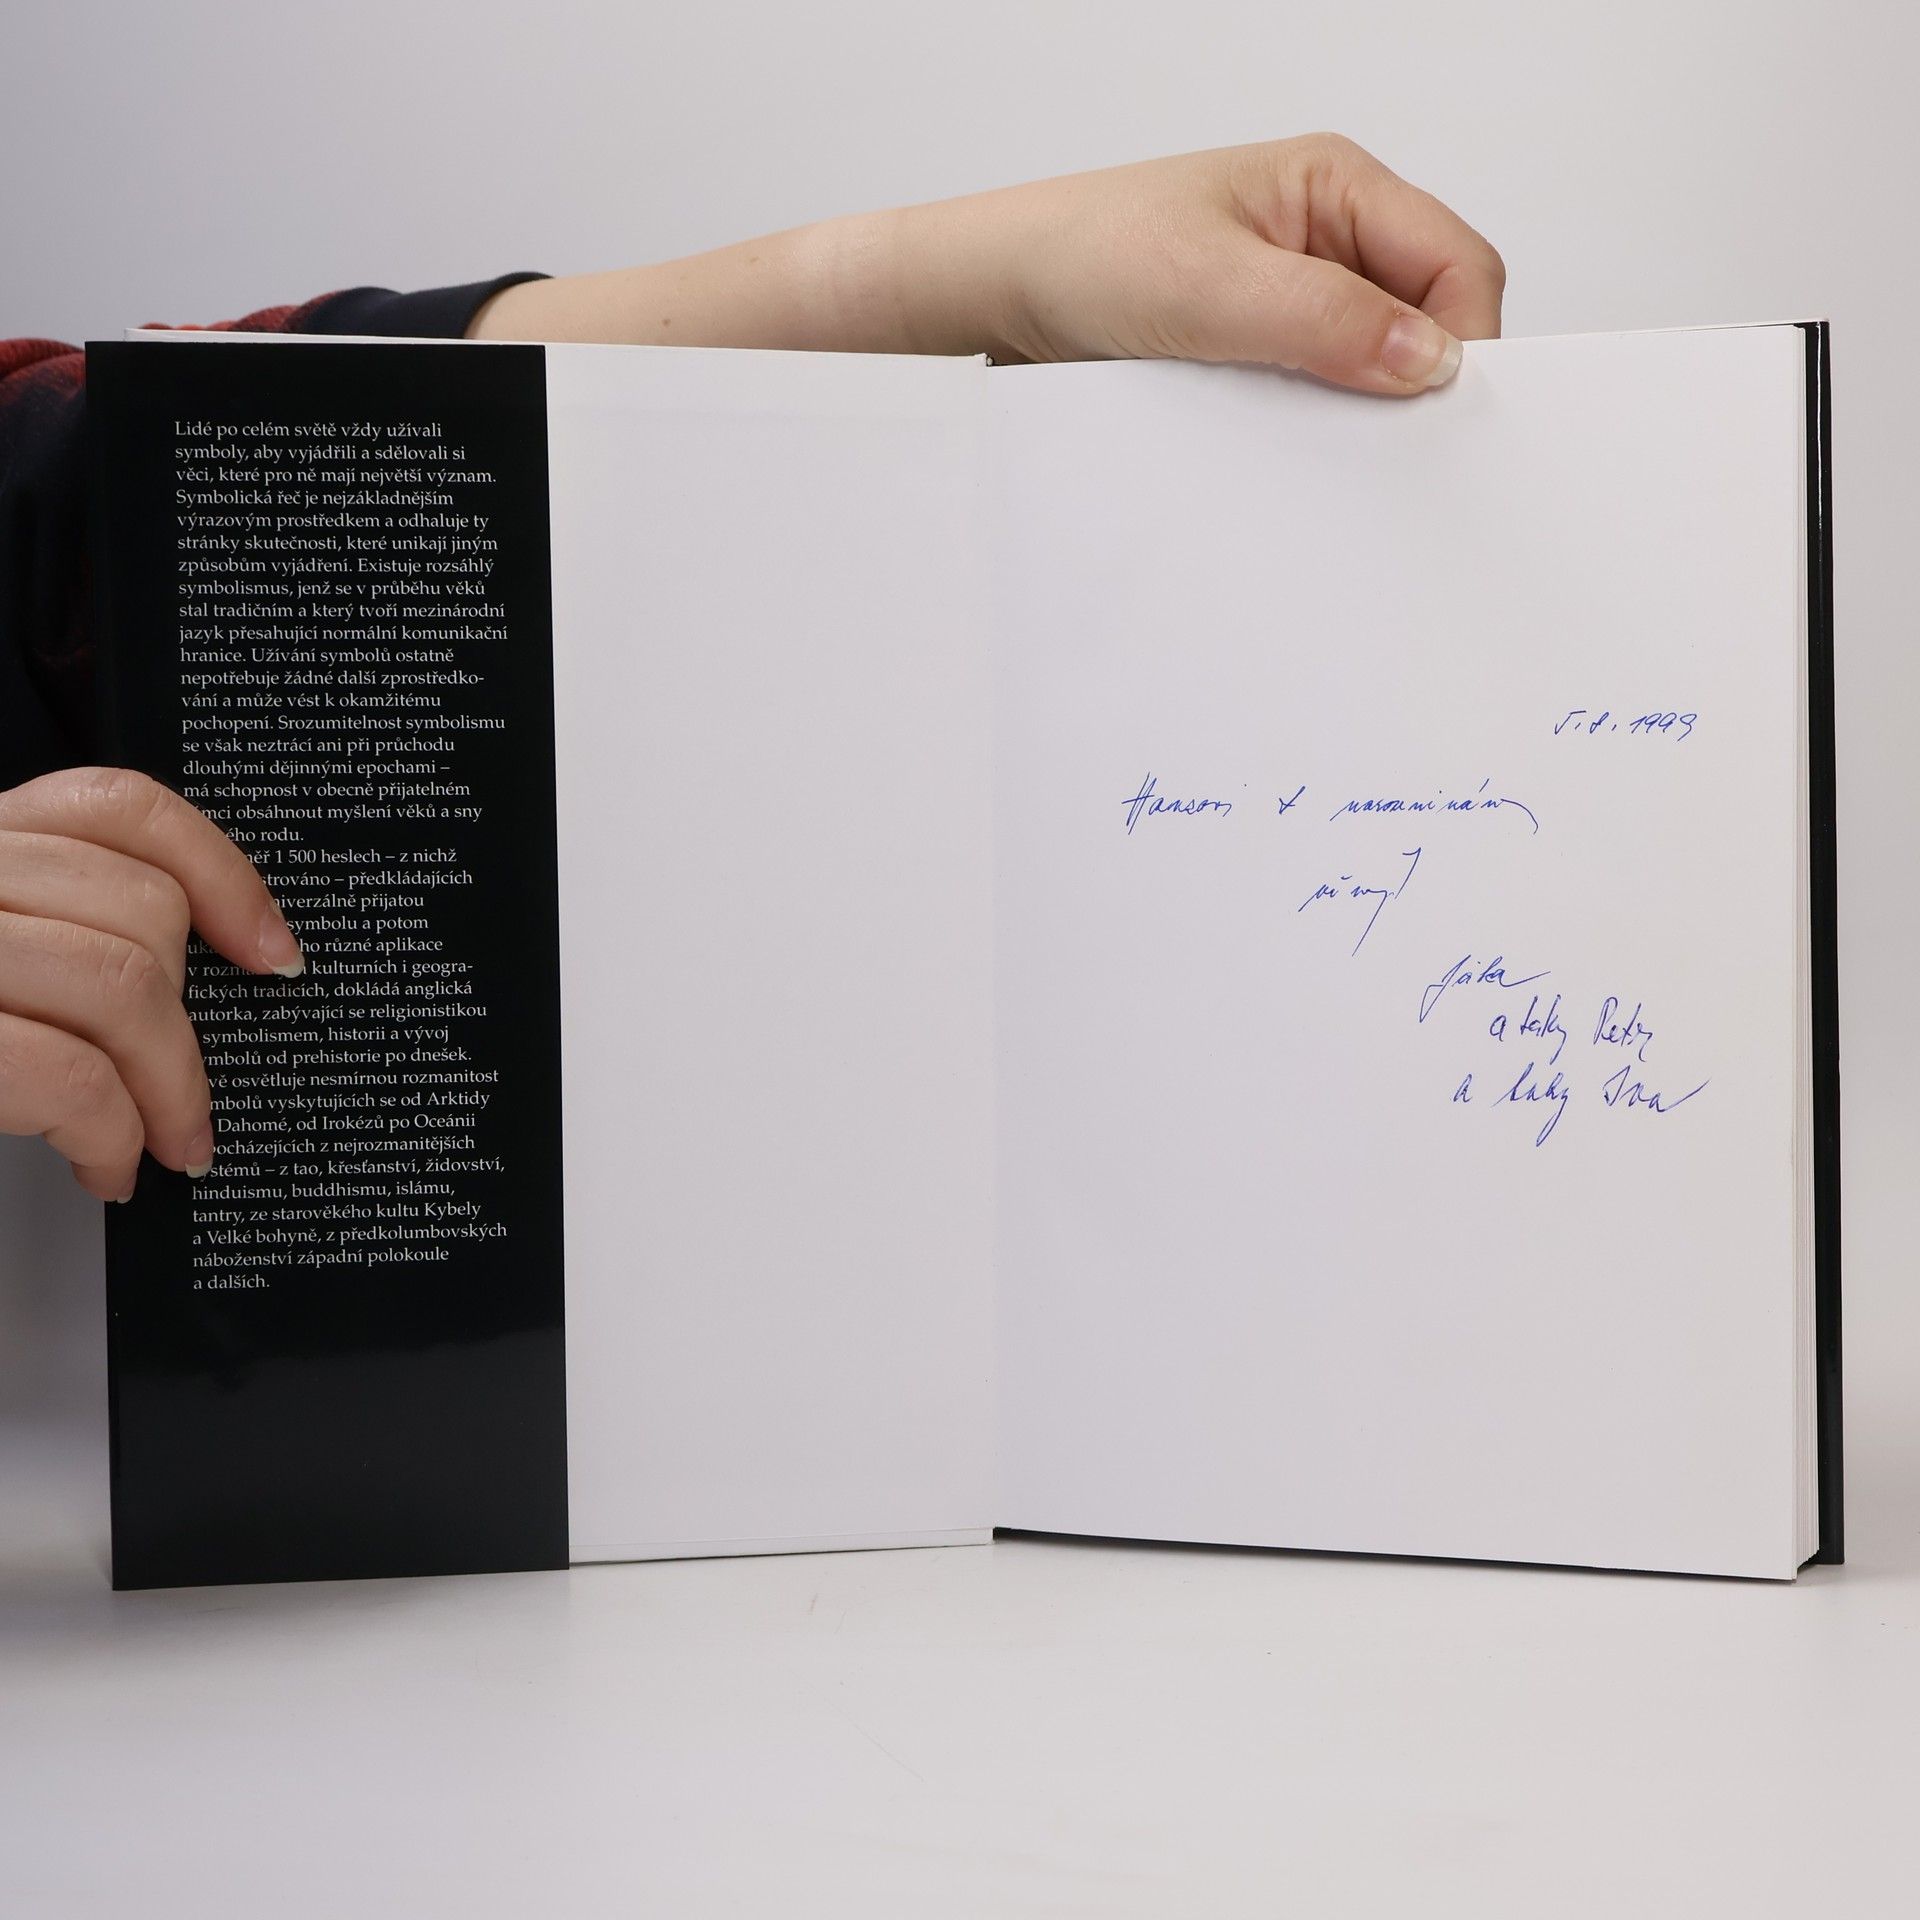 Lidé po celém světě vždy užívali
symboly, aby vyjádřili a sdělovali si
věci, které pro ně mají největší význam.
Symbolická řeč je nejzákladnějším
výrazovým prostředkem a odhaluje ty
stránky skutečnosti, které unikají jiným
způsobům vyjádření. Existuje rozsáhlý
symbolismus, jenž se v průběhu věků
stal tradičním a který tvoří mezinárodní
jazyk přesahující normální komunikační
hranice. Užívání symbolů ostatně
nepotřebuje žádné další zprostředko-
vání a může vést k okamžitému
pochopení. Srozumitelnost symbolismu
se však neztrácí ani při průchodu
dlouhými dějinnými epochami –
má schopnost v obecně přijatelném
mci obsáhnout myšlení věků a sny
ého rodu.
ěř 1 500 heslech – z nichž
strováno – předkládajících
niverzálně přijatou
symbolu a potom
ho různé aplikace
kulturních i geogra-
fických tradicích, dokládá anglická
autorka, zabývající se religionistikou
symbolismem, historii a vývoj
ymbolů od prehistorie po dnešek.
vě osvětluje nesmírnou rozmanitost
mbolů vyskytujících se od Arktidy
Dahomé, od Irokézů po Oceánii
pocházejících z nejrozmanitějších
ystémů – z tao, křesťanství, židovství,
hinduismu, buddhismu, islámu,
tantry, ze starověkého kultu Kybely
a Velké bohyně, z předkolumbovských
náboženství západní polokoule
a dalších.
5.8. 1999
Hansovi k narozeninám
a taky Petr
a taky Iva